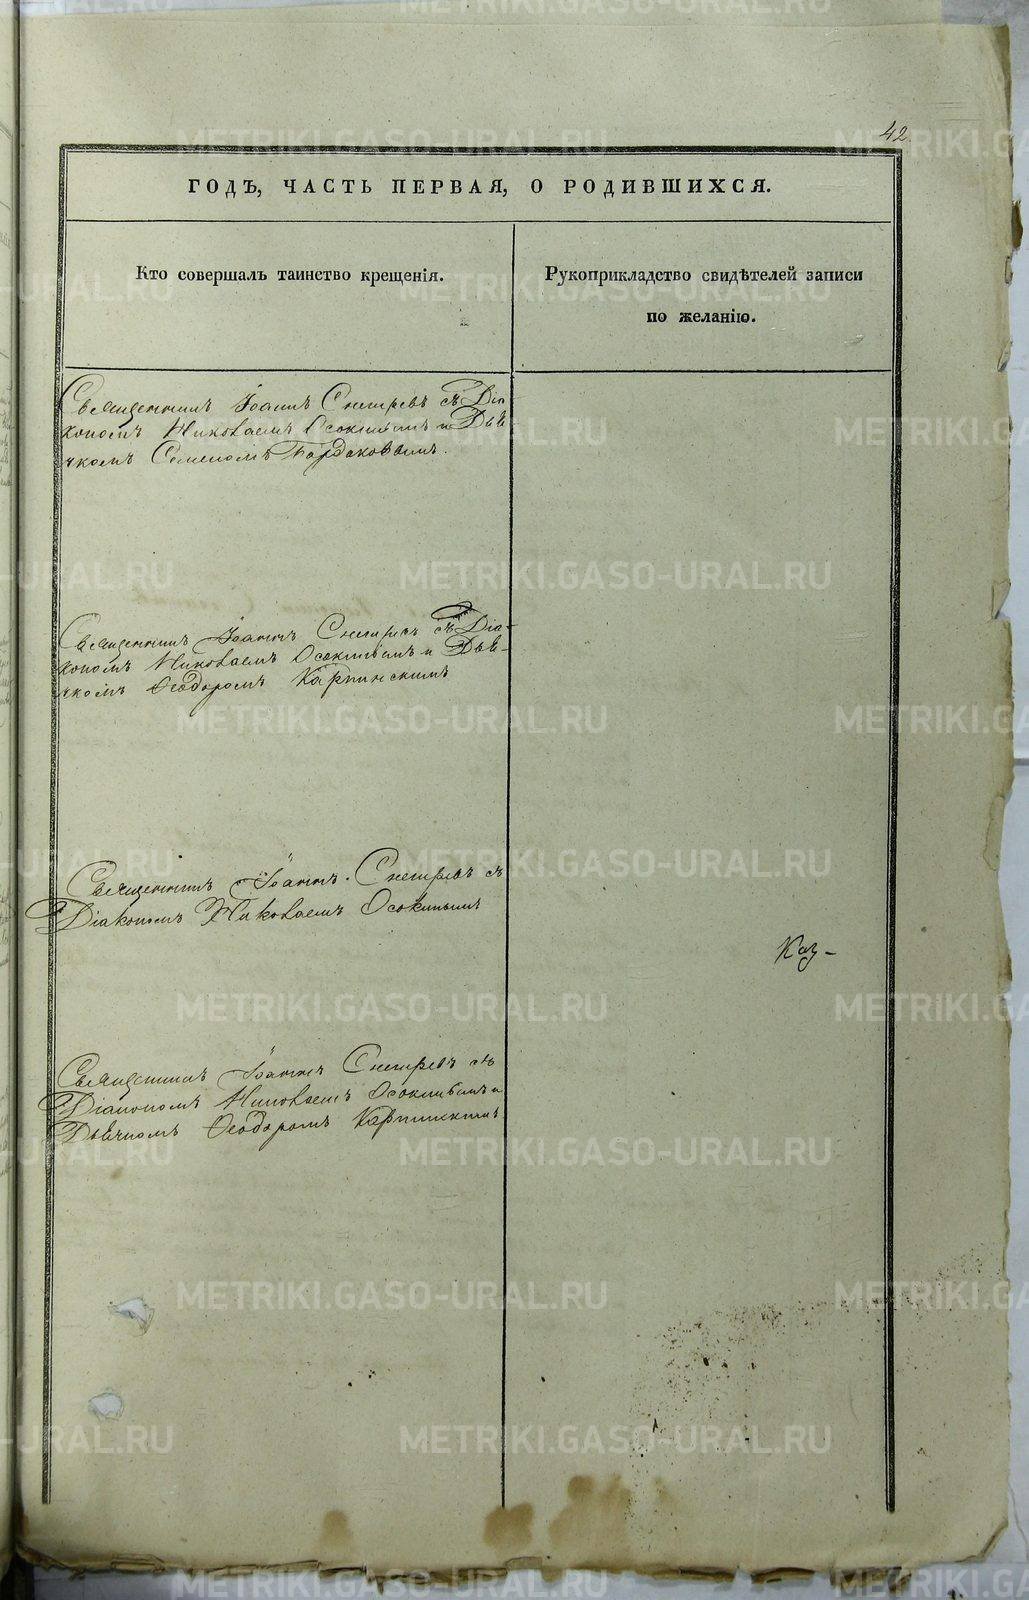 42
ГОДЪ, ЧАСТЬ ПЕРВАЯ, О РОДИВШИХСЯ.
Кто совершалъ таинство крещенія.
Рукоприкладство свидѣтелей записи
по желанію.
Священникъ Іоаннъ Снегиревъ съ Діа
кономъ Николаемъ Осокинымъ и Дьяч
комъ Семеномъ Бардаковымъ.
Священникъ Іоаннъ Снегиревъ съ Діа-
кономъ Николаемъ Осокинымъ и Дьяч-
комъ Ѳеодоромъ Карпинскимъ
Священникъ Іоаннъ Снегиревъ съ
Діакономъ Николаемъ Осокинымъ
Каз-
Священникъ Іоаннъ Снегиревъ съ
Діакономъ Николаемъ Осокинымъ и
Дьячкомъ Ѳеодоромъ Карпинскимъ
METRIKI.GASO-URAL.RU